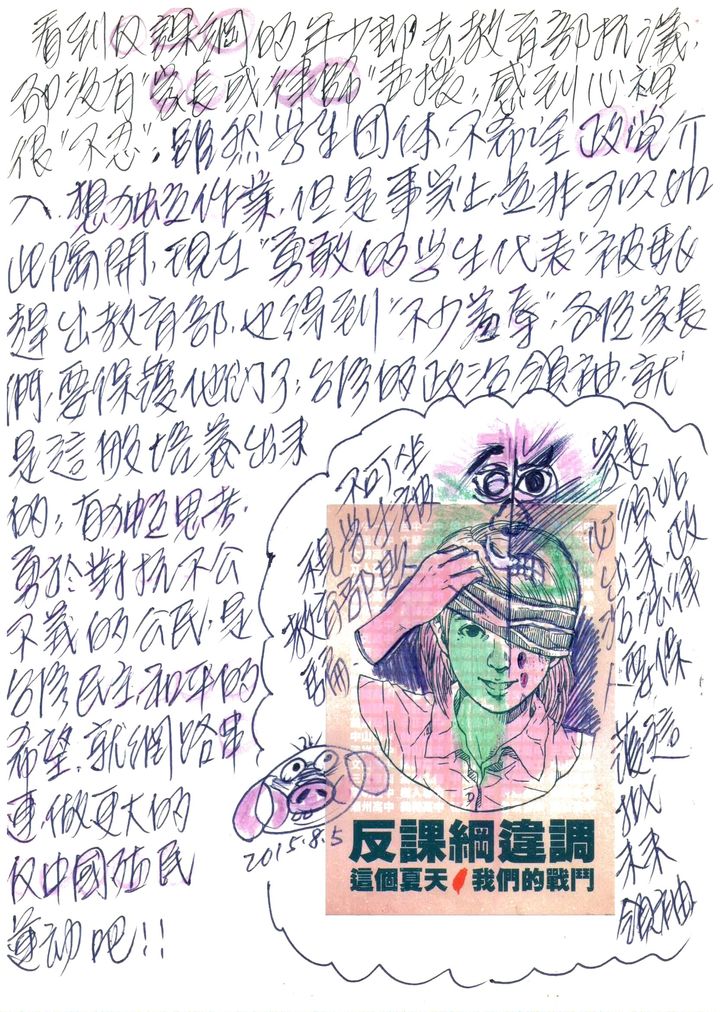 看到反課綱的年少郎去教育部抗議,
卻沒有"家長或律師"聲援,感到心裡
很"不忍",雖然学生団体,不希望政党介
入,想独立作業,但是事实上,並非可以如
此隔開,現在"勇敢的学生代表"被驅
趕出教育部,也得到"不少羞辱",各位家長
們,要保護他们了,台湾的政治領袖,就
是這般培養出來
的,有独立思考,
勇於對抗不公
不義的公民,是
台湾民主,和平的
希望,就網路串
連,做更大的
反中國殖民
運动吧!!
不可坐
視学生被
教育部欺
騙
家長
必須站
出來,政
治法律
上要保
護這
批
未來
領袖
2015.8.5
反課綱違調
這個夏天 我們的戰鬥